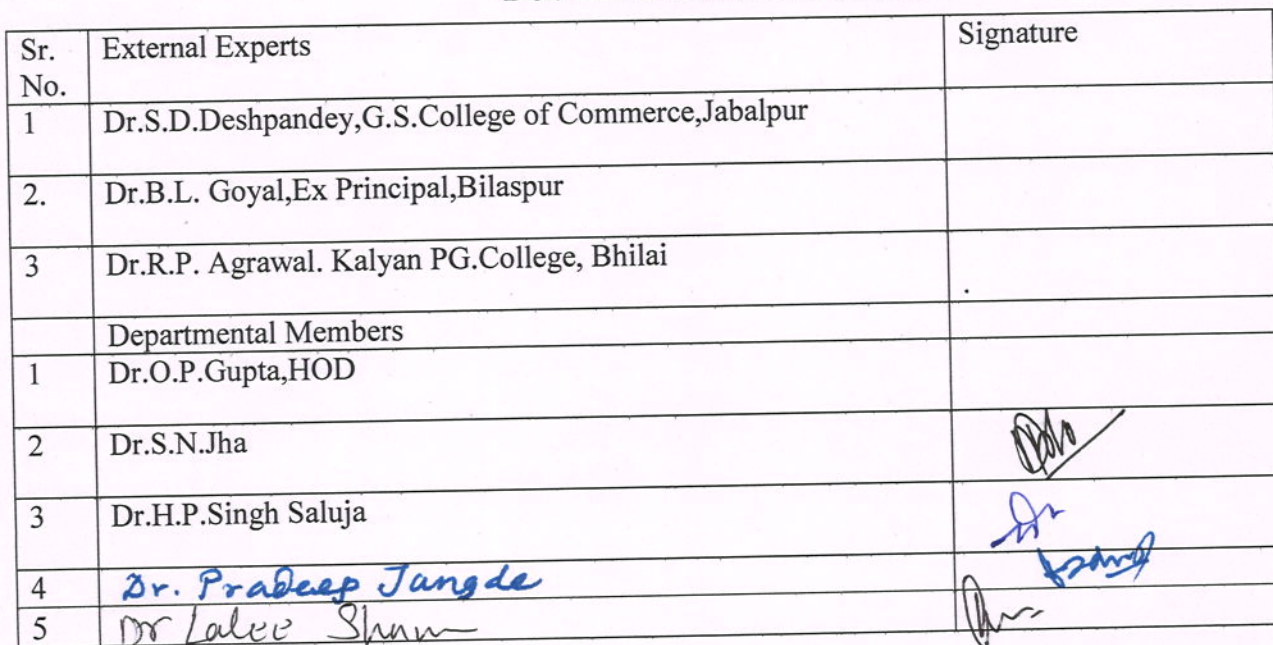 Sr. No. External Experts Signature
1 Dr.S.D.Deshpandey,G.S.College of Commerce,Jabalpur
2. Dr.B.L. Goyal,Ex Principal,Bilaspur
3 Dr.R.P. Agrawal. Kalyan PG.College, Bhilai
Departmental Members
1 Dr.O.P.Gupta,HOD
2 Dr.S.N.Jha
3 Dr.H.P.Singh Saluja
4 Dr. Pradeep Jangde
5 Dr